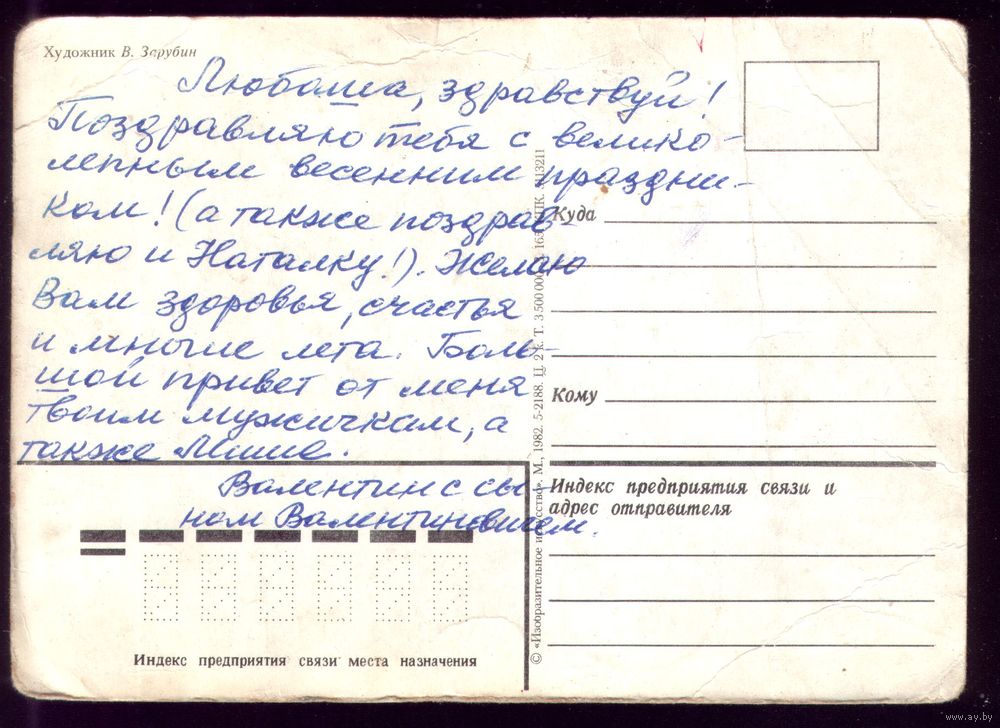 Художник В. Зарубин
Любаша, здравствуй!
Поздравляю тебя с велико-
лепным весенним праздни-
ком! (а также поздрав-
ляю и Наталку!). Желаю
Вам здоровья, счастья
и многие лета. Боль-
шой привет от меня
твоим мужичкам, а
также Мише.
Валентин с сы-
ном Валентиновичем.
Куда
Кому
Индекс предприятия связи и
адрес отправителя
Индекс предприятия связи места назначения
© «Изобразительное искусство». М., 1982. 5-2188. Ц. 2 к. Т. 3 500 000
www.ay.by